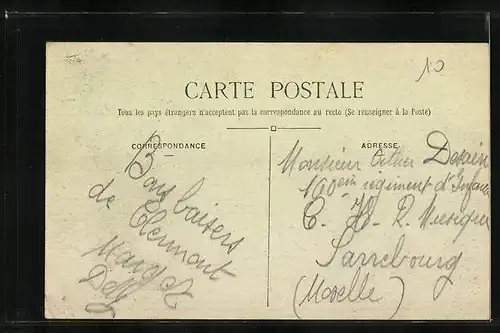 10
CARTE POSTALE
Tous les pays étrangers n'acceptent pas la correspondance au recto (Se renseigner à la Poste)
CORRESPONDANCE
Bons baisers
de Clermont
Margot
ADRESSE
Monsieur
160em régiment d'Infan
C. H. R. Musique
Sarrebourg
(Moselle)